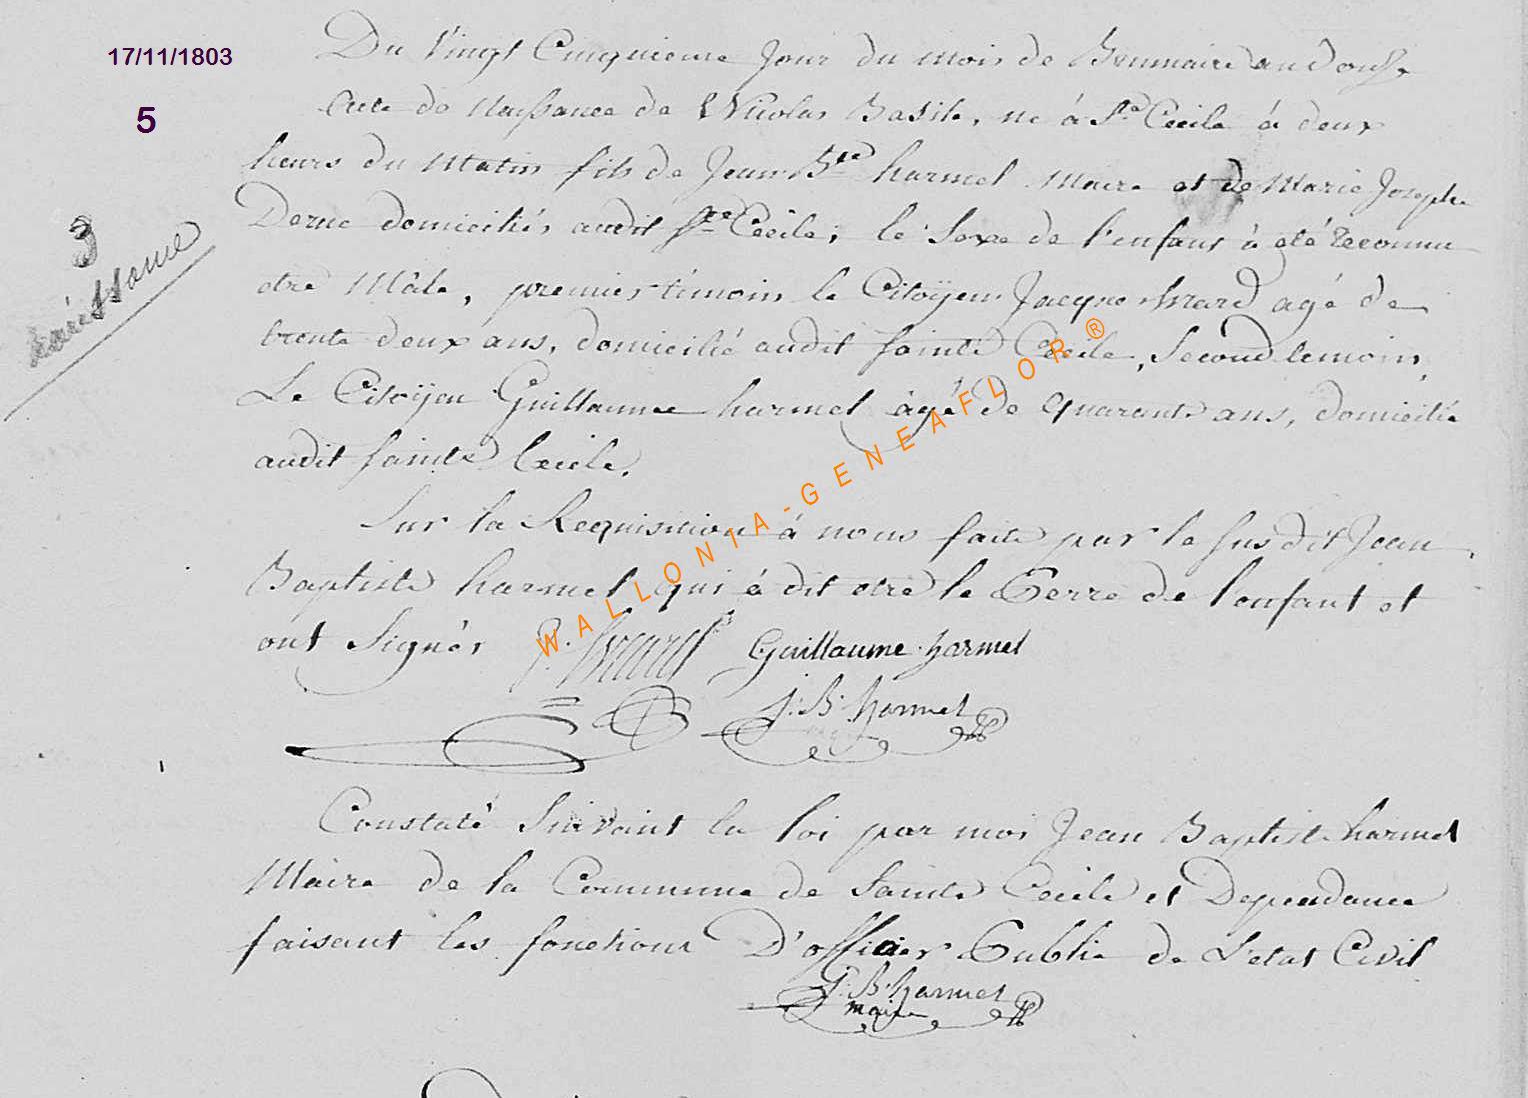 17/11/1803
5
3
naissance
Du Vingt Cinquieme Jour du mois de Brumaire an douse
Acte de Naissance de Nicolas Basile, né à Ste Cecile à deux
heurs du Matin fils de Jean Bte harmel Maire et de Marie Joseph
Derue domiciliés audit Ste Cécile; le Sexe de l'enfant à été Reconnu
etre Mâle, premier témoin le Citoÿen Jacque Evrard agé de
trente deux ans, domicilié audit Sainte Cecile, Second temoin,
Le Citoÿen Guillaume harmel âgé de quarante ans, domicilié
audit Sainte Cecile.
Sur la Requisition à nous faite par le Susdit Jean
Baptiste harmel qui à dit etre le Perre de l'enfant et
ont Signés Guillaume harmel
J: B: harmel
Constaté Suivant la loi par moi Jean Baptiste harmel
Maire de la Commune de Sainte Cecile et Dependance
faisant les fonctions D'officier Public de L'etat Civil
J: B: harmel
maire
WALLONIA-GENEAFLOR ®